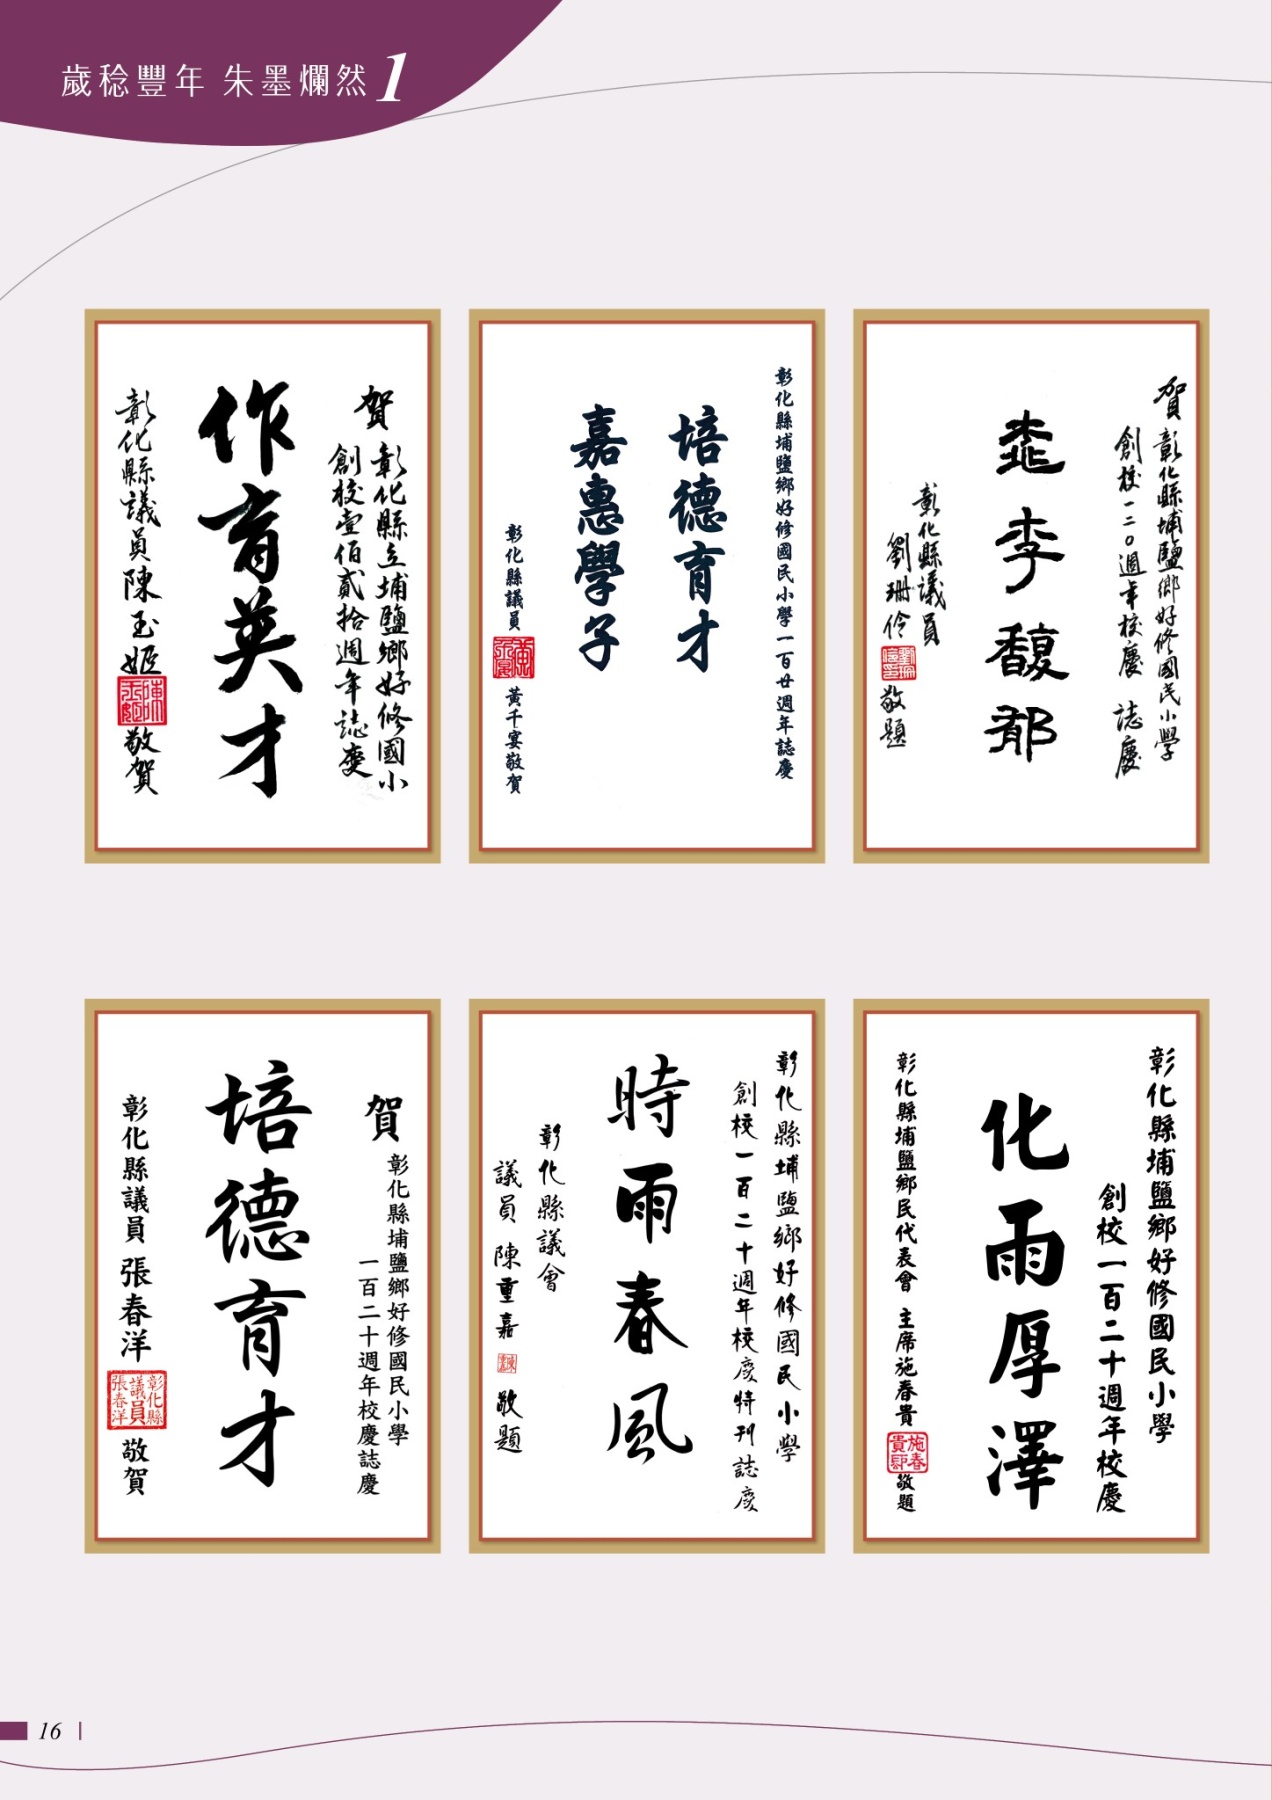 歲稔豐年 朱墨爛然1
賀
彰化縣立埔鹽鄉好修國小
創校壹佰貳拾週年誌慶
作育英才
彰化縣議員陳玉姬
敬賀
彰化縣埔鹽鄉好修國民小學一百廿週年誌慶
培德育才
嘉惠學子
彰化縣議員
黃千宴敬賀
賀彰化縣埔鹽鄉好修國民小學
創校一二〇週年校慶 誌慶
桃李馥郁
彰化縣議員
劉珊伶
敬題
賀
彰化縣埔鹽鄉好修國民小學
一百二十週年校慶誌慶
培德育才
彰化縣議員 張春洋
彰化縣
議員
張春洋
敬賀
彰化縣埔鹽鄉好修國民小學
創校一百二十週年校慶特刊誌慶
時雨春風
彰化縣議會
議員 陳重嘉
敬題
彰化縣埔鹽鄉好修國民小學
創校一百二十週年校慶
化雨厚澤
彰化縣埔鹽鄉民代表會 主席施春貴
施春
貴印
敬題
16